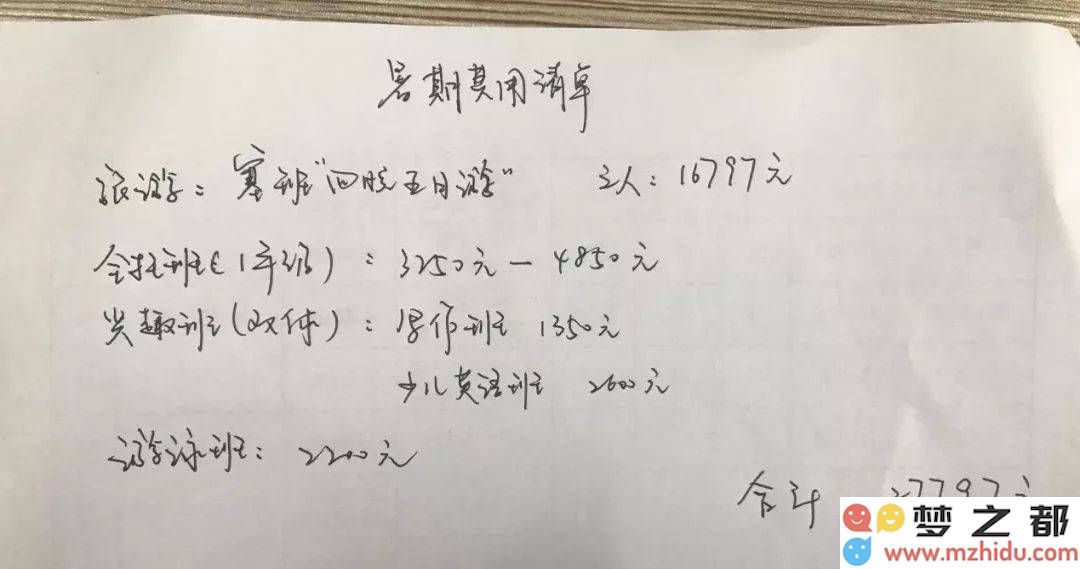 暑期费用清单
旅游: 塞班"四晚五日游" 三人: 16797元
全托班(1年级): 3250元-4850元
兴趣班(双休): 写作班 1350元
少儿英语班 2600元
游泳班: 2200元
合计 27797元
梦之都
www.mzhidu.com